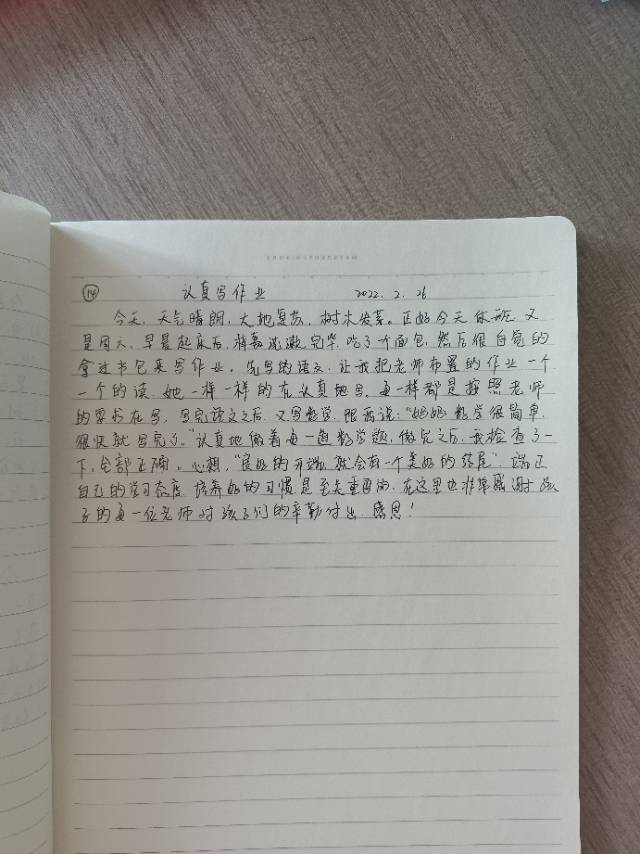 ⑭ 认真写作业 2022.2.26
今天,天气晴朗,大地复苏,树木发芽。正好今天休班,又
是周六,早晨起床后,梓萱洗漱完毕,吃了个面包,然后很自觉的
拿过书包来写作业。先写的语文,让我把老师布置的作业一个
一个的读,她一样一样的在认真地写,每一样都是按照老师
的要求在写,写完语文之后,又写数学,跟我说:“妈妈,数学很简单,
很快就写完了。”认真地做着每一道数学题,做完之后,我检查了一
下,全部正确。心想,“良好的开端,就会有一个美好的结尾”,端正
自己的学习态度,培养好的习惯是至关重要的,在这里也非常感谢孩
子的每一位老师对孩子们的辛勤付出,感恩!